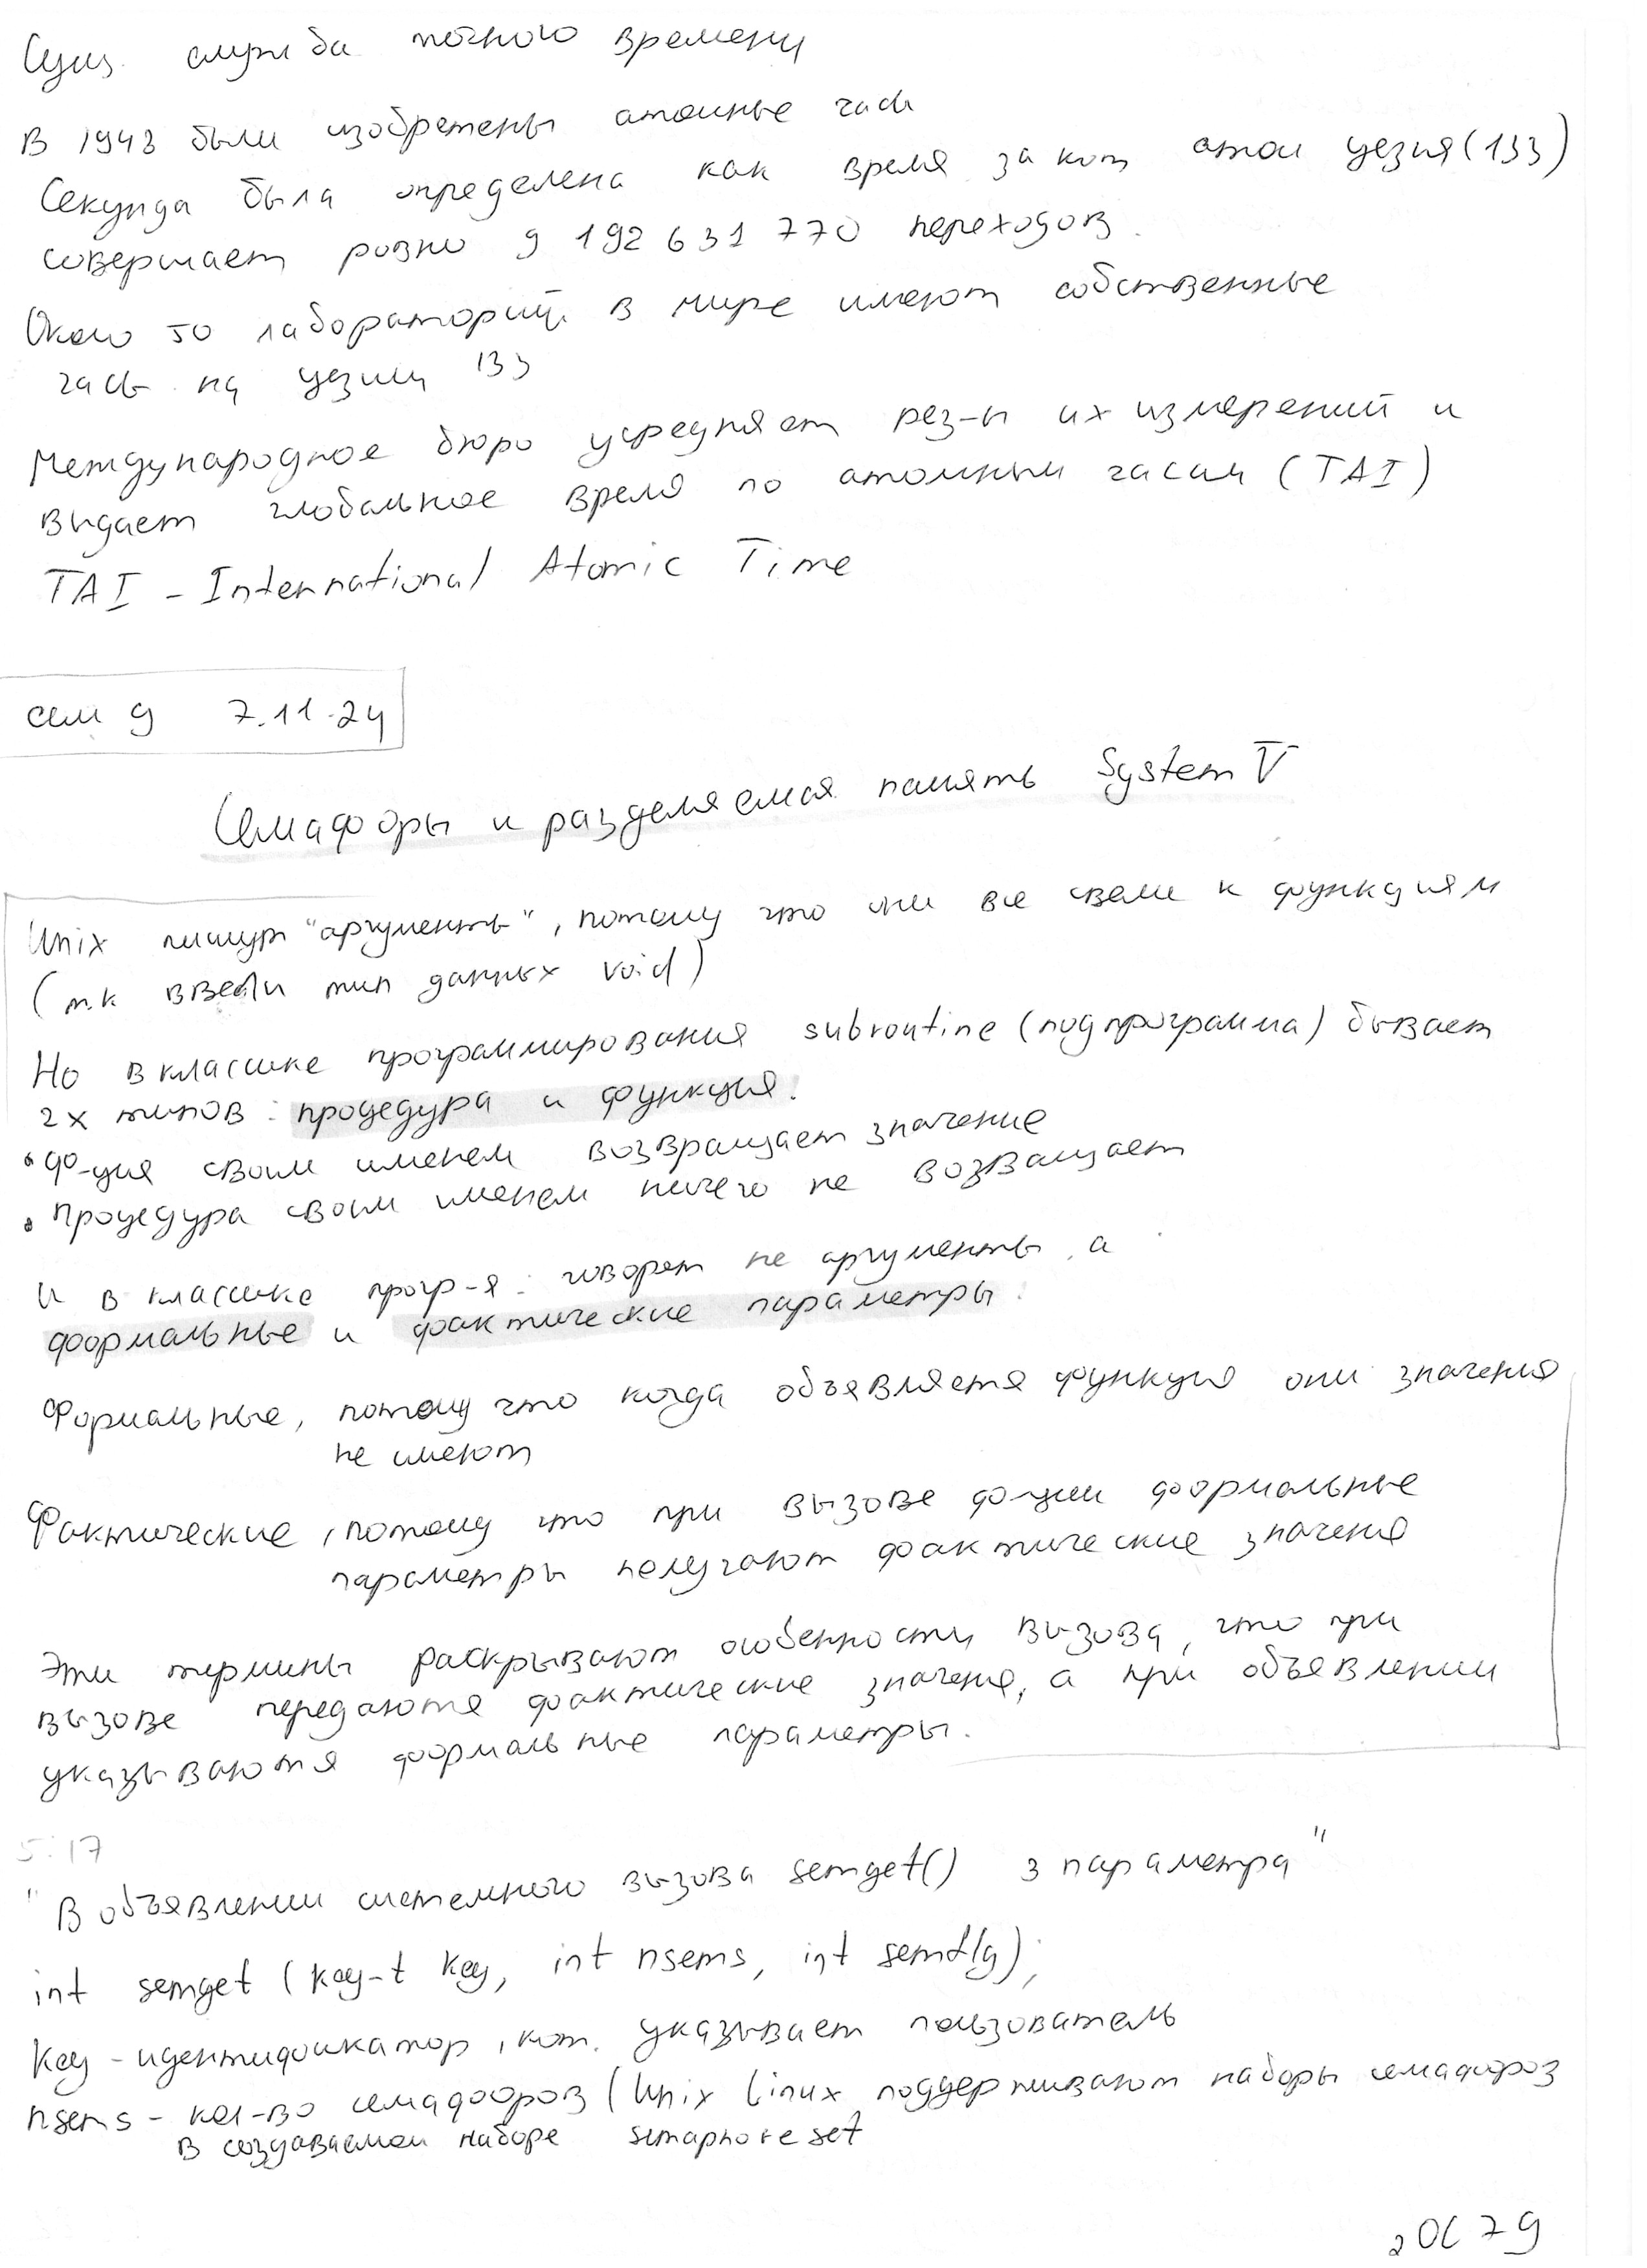 Сущ. служба точного времени
В 1943 были изобретены атомные часы
Секунда была определена как время за кот атом цезия (133)
совершает ровно 9 192 631 770 переходов.
Около 50 лабораторий в мире имеют собственные
часы на цезии 133
Международное бюро усредняет рез-ы их измерений и
выдает глобальное время по атомным часам (TAI)
TAI - International Atomic Time
сем 9 7.11.24
Семафоры и разделяемая память System V
Unix пишут "аргументы", потому что они все свели к функциям
(т.к ввели тип данных void)
Но в классике программирования subroutine (подпрограмма) бывает
2х типов: процедура и функция.
• ф-ция своим именем возвращает значение
• процедура своим именем ничего не возващает
И в классике прогр-я: говорят не аргументы, а
формальные и фактические параметры.
Формальные, потому что когда объявляется функция они значения
не имеют
Фактические, потому что при вызове ф-ции формальные
параметры получают фактические значения
Эти термины раскрывают особенности вызова, что при
вызове передаются фактические значения, а при объявлении
указываются формальные параметры.
5:17
"В объявлении системного вызова semget() 3 параметра"
int semget (key-t key, int nsems, int semflg);
key - идентификатор, кот. указывает пользователь
nsems - кол-во семафоров (Unix Linux поддерживают наборы семафоров
в создаваемом наборе semaphore set
2 ОС 79